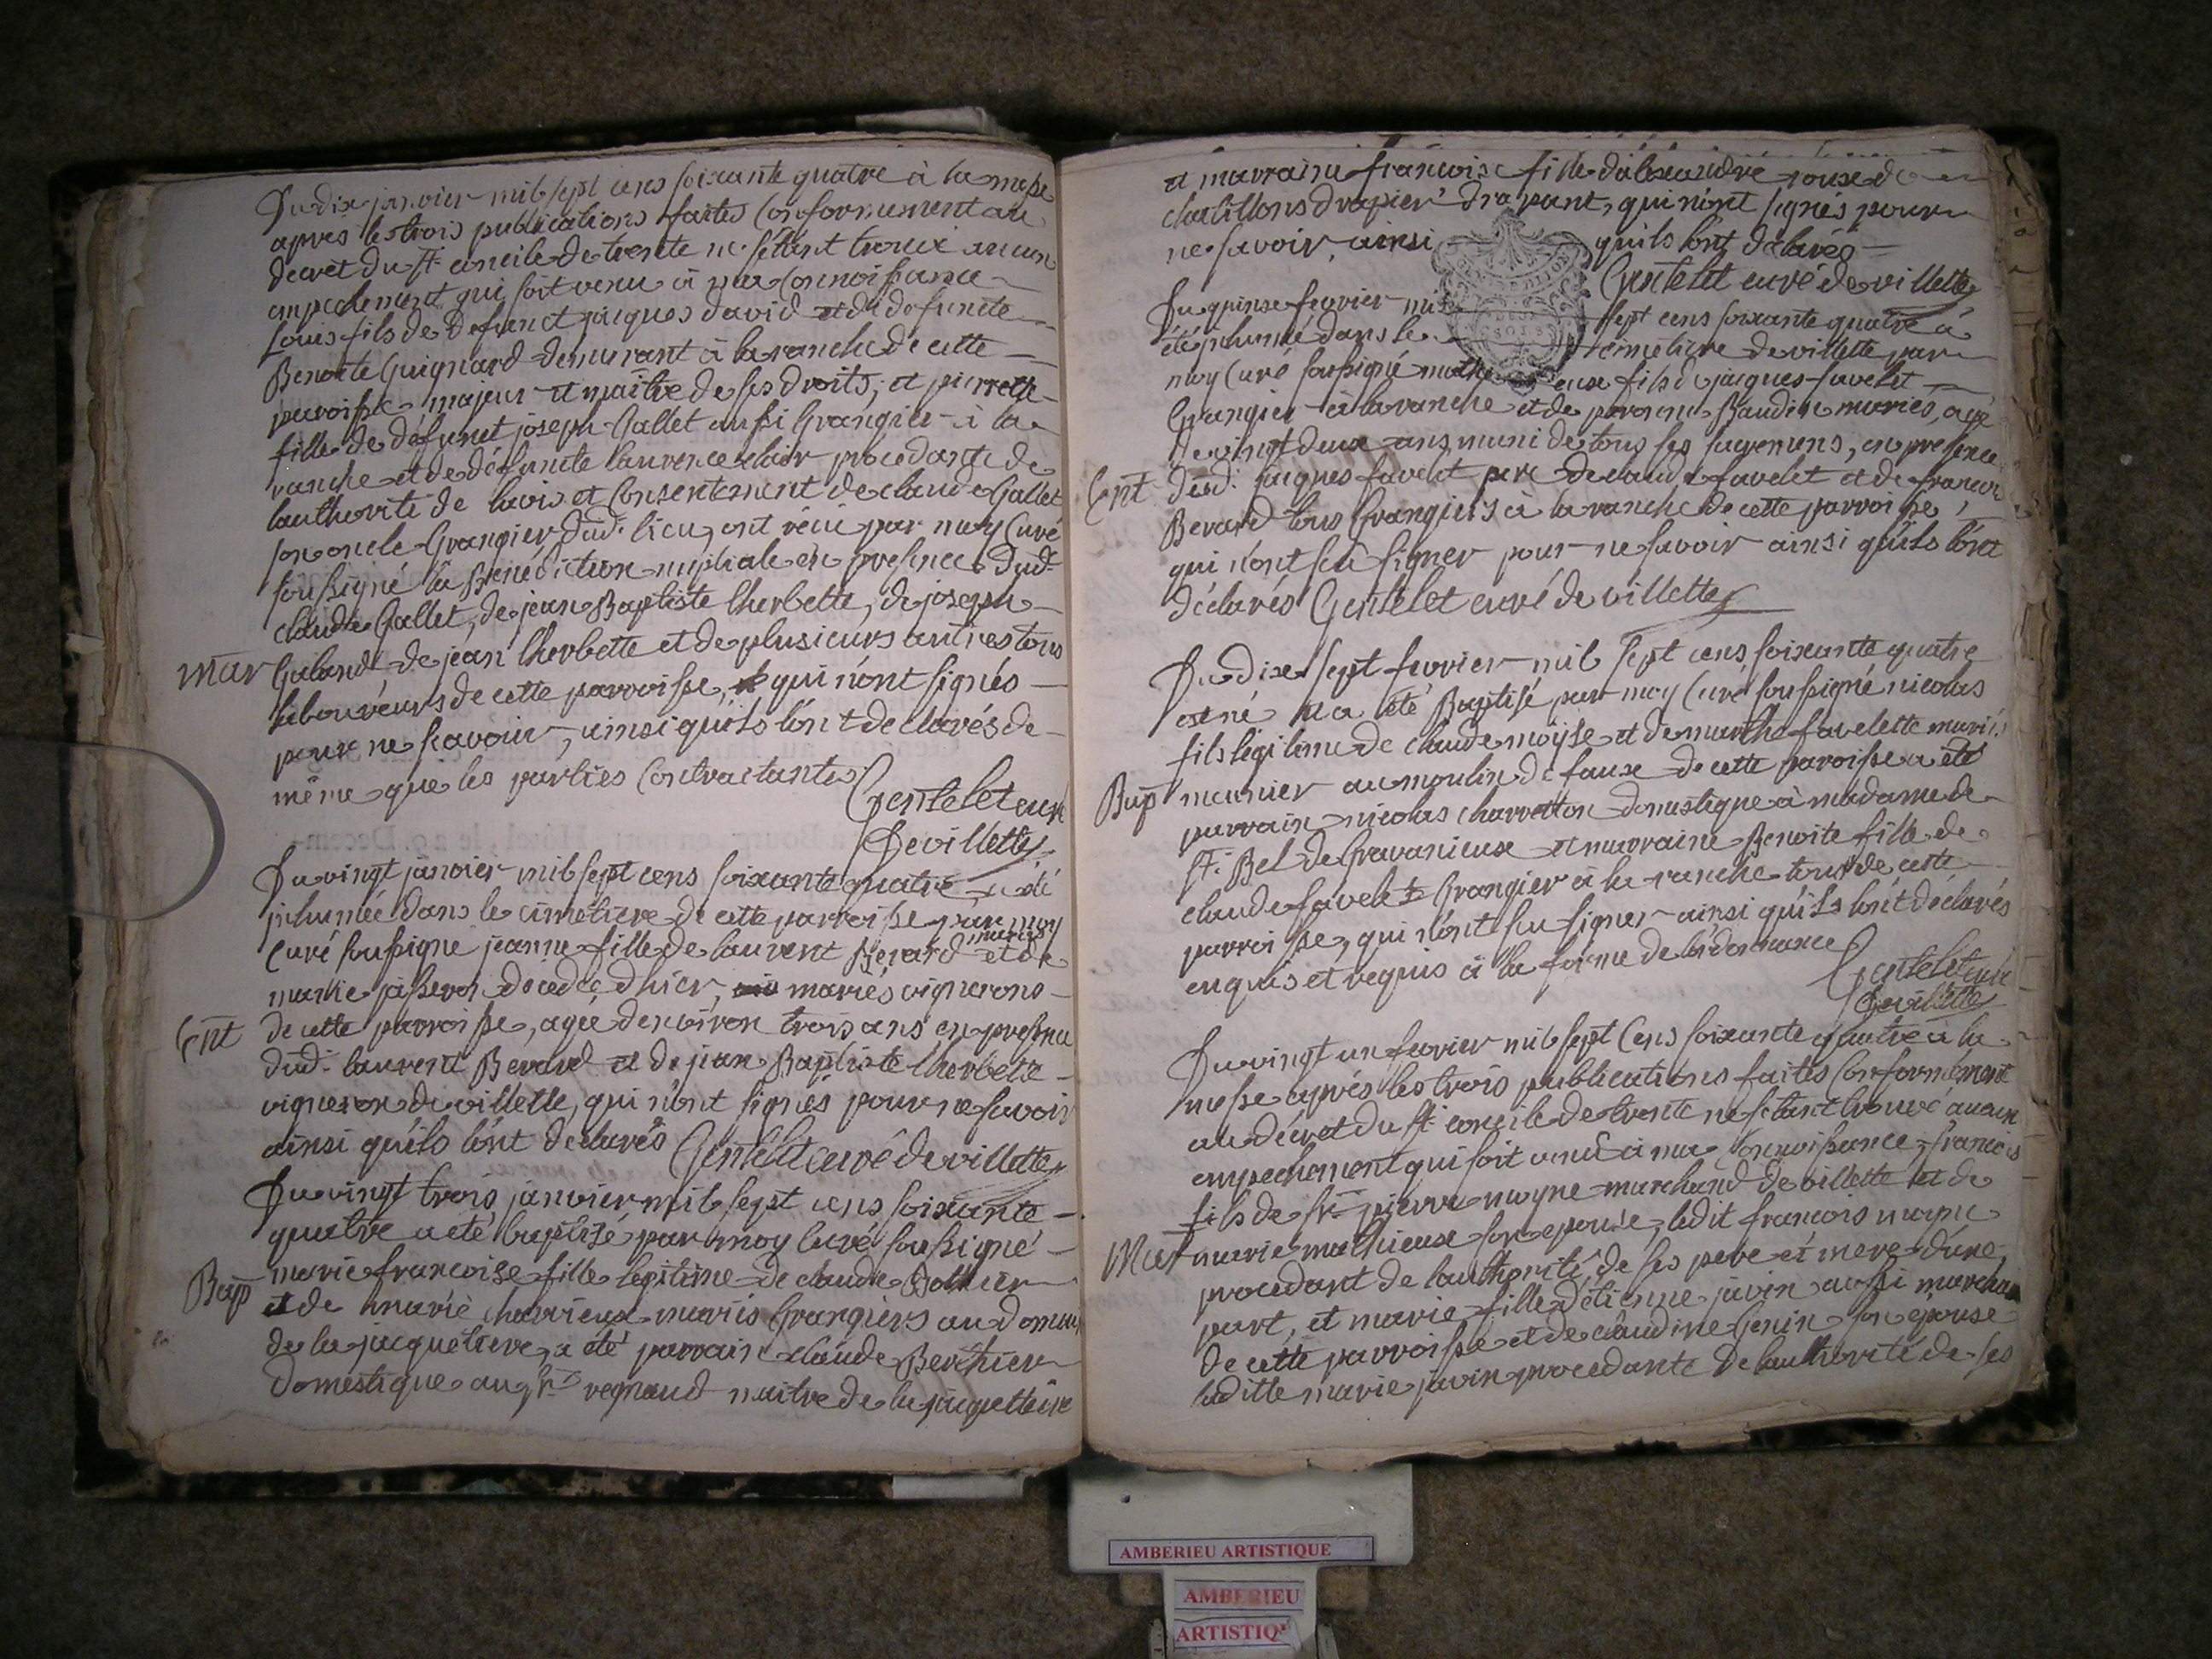 Du dix janvier mil sept cens soixante quatre à la messe
apres les trois publications faites Conformement au
decret du st. concile de trente ne s'etant trouvé aucun
empechement qui soit venu à ma Connoissance
Louis fils de defunct jacques david et de defuncte
Benoite Guignard demeurant à la ranche de cette
paroisse majeur et maitre de ses droits, et pierrette
fille de défunct joseph Gallet aussi Grangier à la
ranche et de défuncte laurence clair procedante de
lauthorité de lavis et Consentement de claude Gallet
son oncle Grangier dud. lieu, ont récu par moy Curé
soussigné la Bénédiction nuptiale en presence dud.
claude Gallet, de jean Baptiste lherbette, de joseph
Mar Galand de jean lherbette et de plusieurs autres tous
laboureurs de cette parroisse, qui n'ont signés
pour ne scavoir, ainsi quils l'ont declarés de
même que les parties Contractantes Gentelet curé
De villette
Du vingt janvier mil sept cens soixante quatre a été
inhumée dans le cimetiere de cette parroisse par moy
Curé soussigné jeanne fille de laurent Berard mariés et de
marie decedée d'hier, mariés vignerons
Ent de cette parroisse, agée denviron trois ans en presence
dud. laurent Berard et de jean Baptiste lherbette
vigneron de villette, qui n'ont signés pour ne savoir
ainsi quils l'ont declarés Gentelet curé de villette
Du vingt trois janvier mil sept cens soixante
quatre a eté baptisé par moy curé soussigné
marie francoise fille legitime de claude
Bap et de marie charrieux mariés Grangiers au domaine
de la jacquetiere, a été parrain claude Berthier
Domestique au sr. regnaud maitre de la jacquettiere
et marraine francoise fille d'alexandre rouse de
chatillons drapier drapant, qui n'ont signés pour
ne savoir, ainsi quils l'ont déclarés
Gentelet curé de villette
Du quinse fevrier mil sept cens soixante quatre à
été inhumé dans le cimetiere de villette par
moy Curé soussigné fils de jacques favelet
Grangier à la ranche et de peronne Baudin mariés, agé
de vingt deux ans, muni de tous ses sacremens, en presence
Ent dud. jacques favelet pere de claude favelet et de francois
Berard tous Grangiers à la ranche de cette parroisse,
qui n'ont scu signer pour ne savoir ainsi quils l'ont
déclarés Gentelet curé de villette
Du dixe sept fevrier mil sept cens soixante quatre
est né et a été Baptisé par moy Curé soussigné nicolas
fils légitime de claude moyse et de marthe favelette mariés
Bap meunier au moulin de fause de cette paroisse a été
parrain nicolas charvetton domestique à madame de
st. Bel de Gravanieuse et marraine Benoite fille de
claude favelet Grangier à la ranche tous de cette
parroisse, qui n'ont scu signer ainsi quils l'ont déclarés
enquis et requis à la forme de l'ordonnance Gentelet curé
De villette
Du vingt un fevrier mil sept Cens soixante quatre à la
messe aprés les trois publications faites Conformément
au décret du st. concile de trente ne s'etant trouvé aucun
empechement qui soit venu à ma Connoissance, francois
fils de sr. pierre moyne marchand de villette et de
Mar marie mathieuse son epouse, ledit francois moyne
procedant de lauthorité de ses pere et mere d'une
part, et marie fille d'étienne javin aussi marchand
de cette parroisse et de claudine Genin son épouse
laditte marie javin procedante de lauthorité de ses
AMBERIEU ARTISTIQUE
AMBERIEU
ARTISTIQ